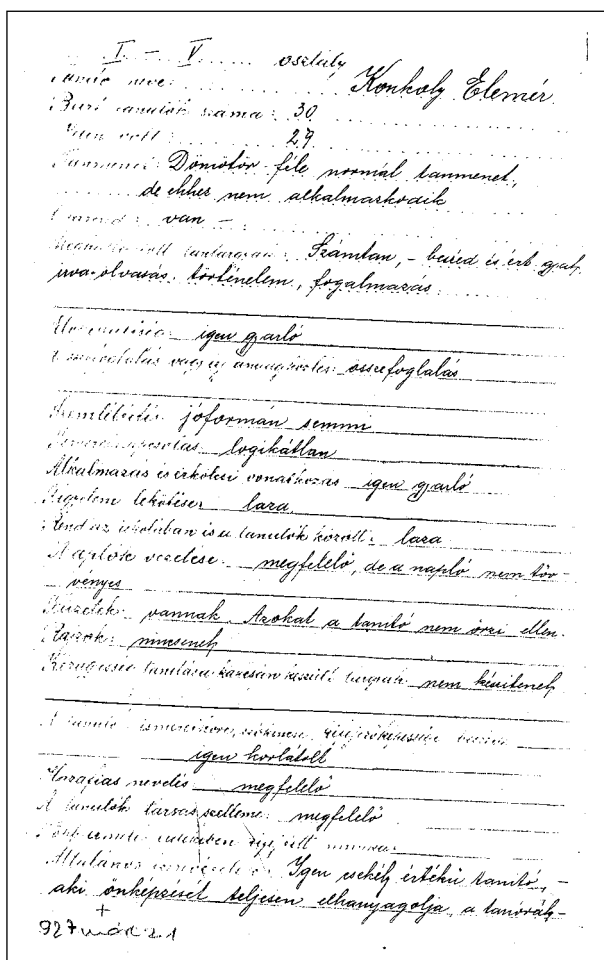 I. – V. osztály
Tanító neve: Konkoly Elemér
Beirt tanulók száma: 30
Jelen volt: 29
Tanmenet: Dömötör féle normál tanmenet,
de ehhez nem alkalmazkodik
Órarend: van –
tantárgyak: Számtan, – beszéd és ért. gyak.
irva-olvasás, történelem, fogalmazás
igen gyarló
összefoglalás
Szemléltetés: jóformán semmi
logikátlan
Alkalmazás és erkölcsi vonatkozás igen gyarló
Figyelem lekötése: laza
Rend az iskolában és a tanulók között: laza
A naplók vezetése: megfelelő, de a napló nem tör-
vényes
Füzetek: vannak. Azokat a tanító nem őrzi ellen.
Rajzok: nincsenek
Kézügyesség tanítása kapcsán készült tárgyak: nem készitenek
A tanító
igen korlátolt
Hazafias nevelés megfelelő
A tanulók társas szelleme: megfelelő
Általános Igen csekély értékű tanító, –
aki önképzését teljesen elhanyagolja, a tanórák-
+
927 márc 21